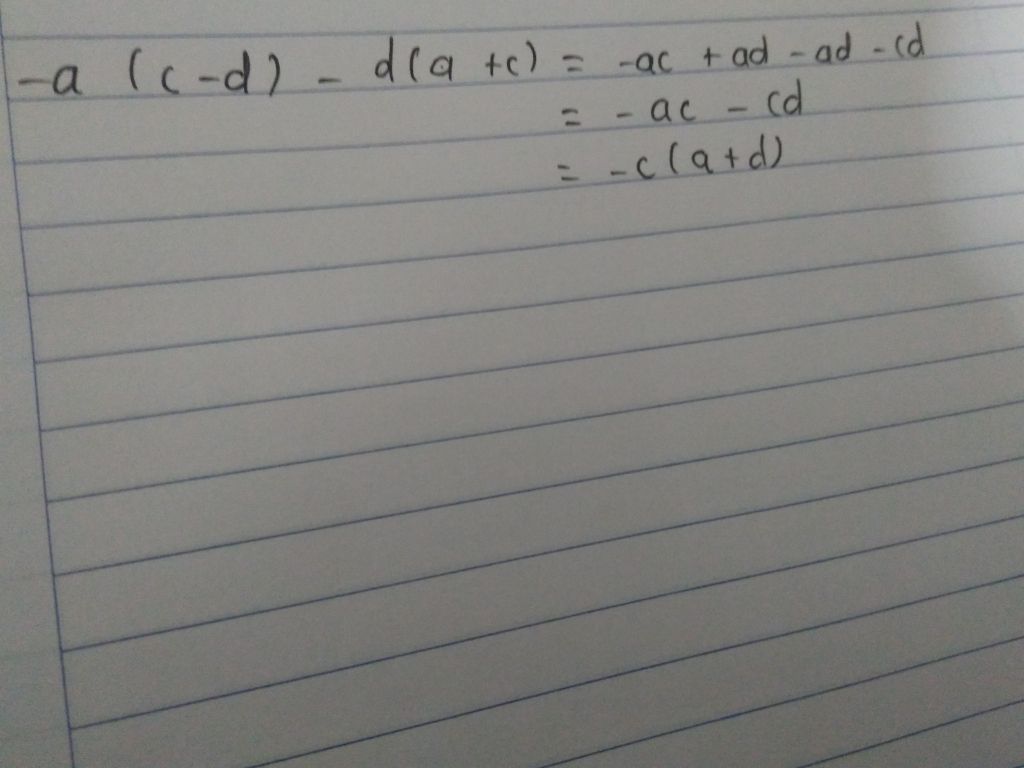 -a (c-d) - d(a+c) = -ac + ad - ad - cd
= - ac - cd
= -c(a+d)